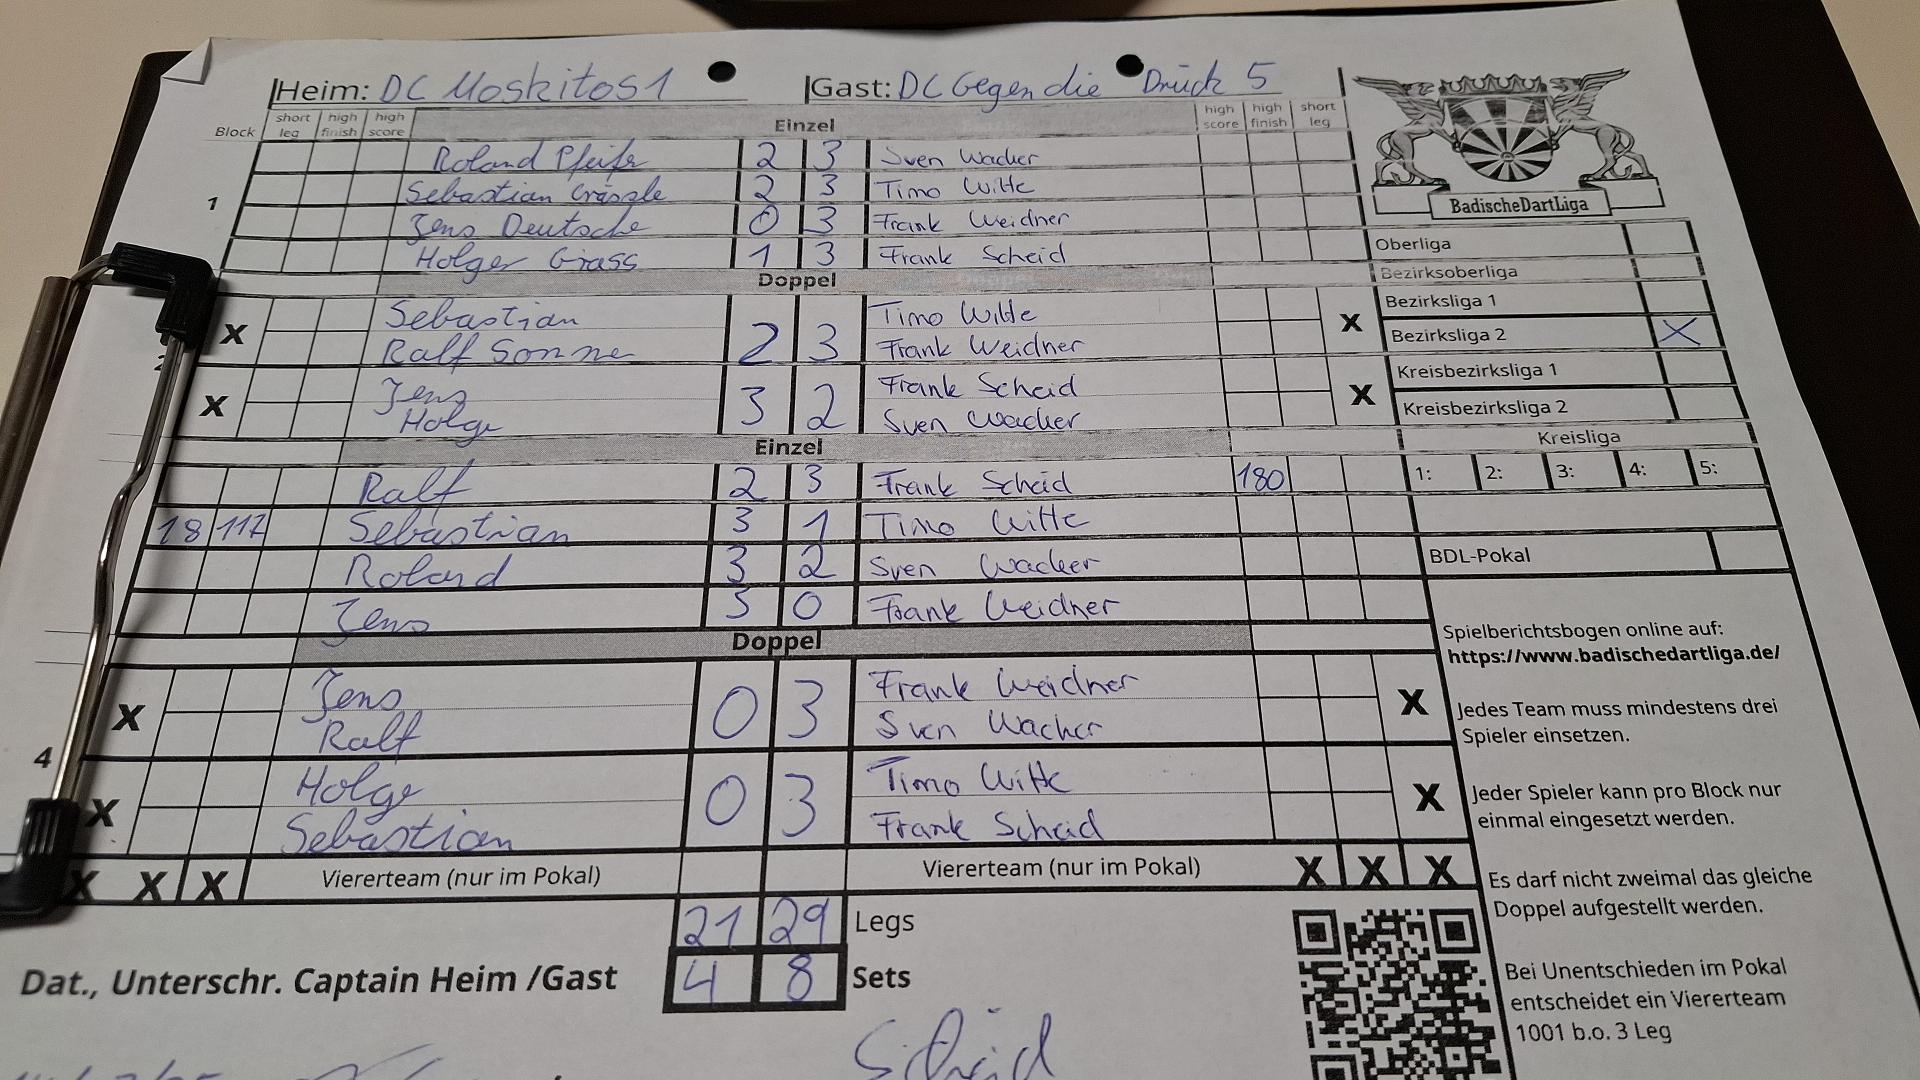 Heim: DC Moskitos 1 Gast: DC Gegen die Drück 5
Block short leg high finish high score Einzel high score high finish short leg
1
Roland Pfeifer 2 3 Sven Wacker
Sebastian Grässle 2 3 Timo Witte
Jens Deutsche 0 3 Frank Weidner
Holger Grass 1 3 Frank Scheid
BadischeDartLiga
Oberliga
Doppel
Bezirksoberliga
X Sebastian Ralf Sonne 2 3 Timo Witte Frank Weidner X
Bezirksliga 1
Bezirksliga 2 X
X Jens Holge 3 2 Frank Scheid Sven Wacker X
Kreisbezirksliga 1
Kreisbezirksliga 2
Einzel
Kreisliga
1: 2: 3: 4: 5:
Ralf 2 3 Frank Scheid 180
18 117 Sebastian 3 1 Timo Witte
Roland 3 2 Sven Wacker
Jens 3 0 Frank Weidner
BDL-Pokal
Doppel
X Jens Ralf 0 3 Frank Weidner Sven Wacker X
4
X Holge Sebastian 0 3 Timo Witte Frank Scheid X
X X X Viererteam (nur im Pokal) Viererteam (nur im Pokal) X X X
21 29 Legs
4 8 Sets
Dat., Unterschr. Captain Heim /Gast
Scheid
Spielberichtsbogen online auf:
https://www.badischedartliga.de/
Jedes Team muss mindestens drei
Spieler einsetzen.
Jeder Spieler kann pro Block nur
einmal eingesetzt werden.
Es darf nicht zweimal das gleiche
Doppel aufgestellt werden.
Bei Unentschieden im Pokal
entscheidet ein Viererteam
1001 b.o. 3 Leg